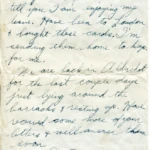 tell you I am enjoying my
leave. Have been to London
& bought these cards. I'm
sending them home to keep
for me.
We are back in Aldershot
for the last couple days
just lying around the
barracks & resting up. Have
received some more of your
letters & will answer them
soon.